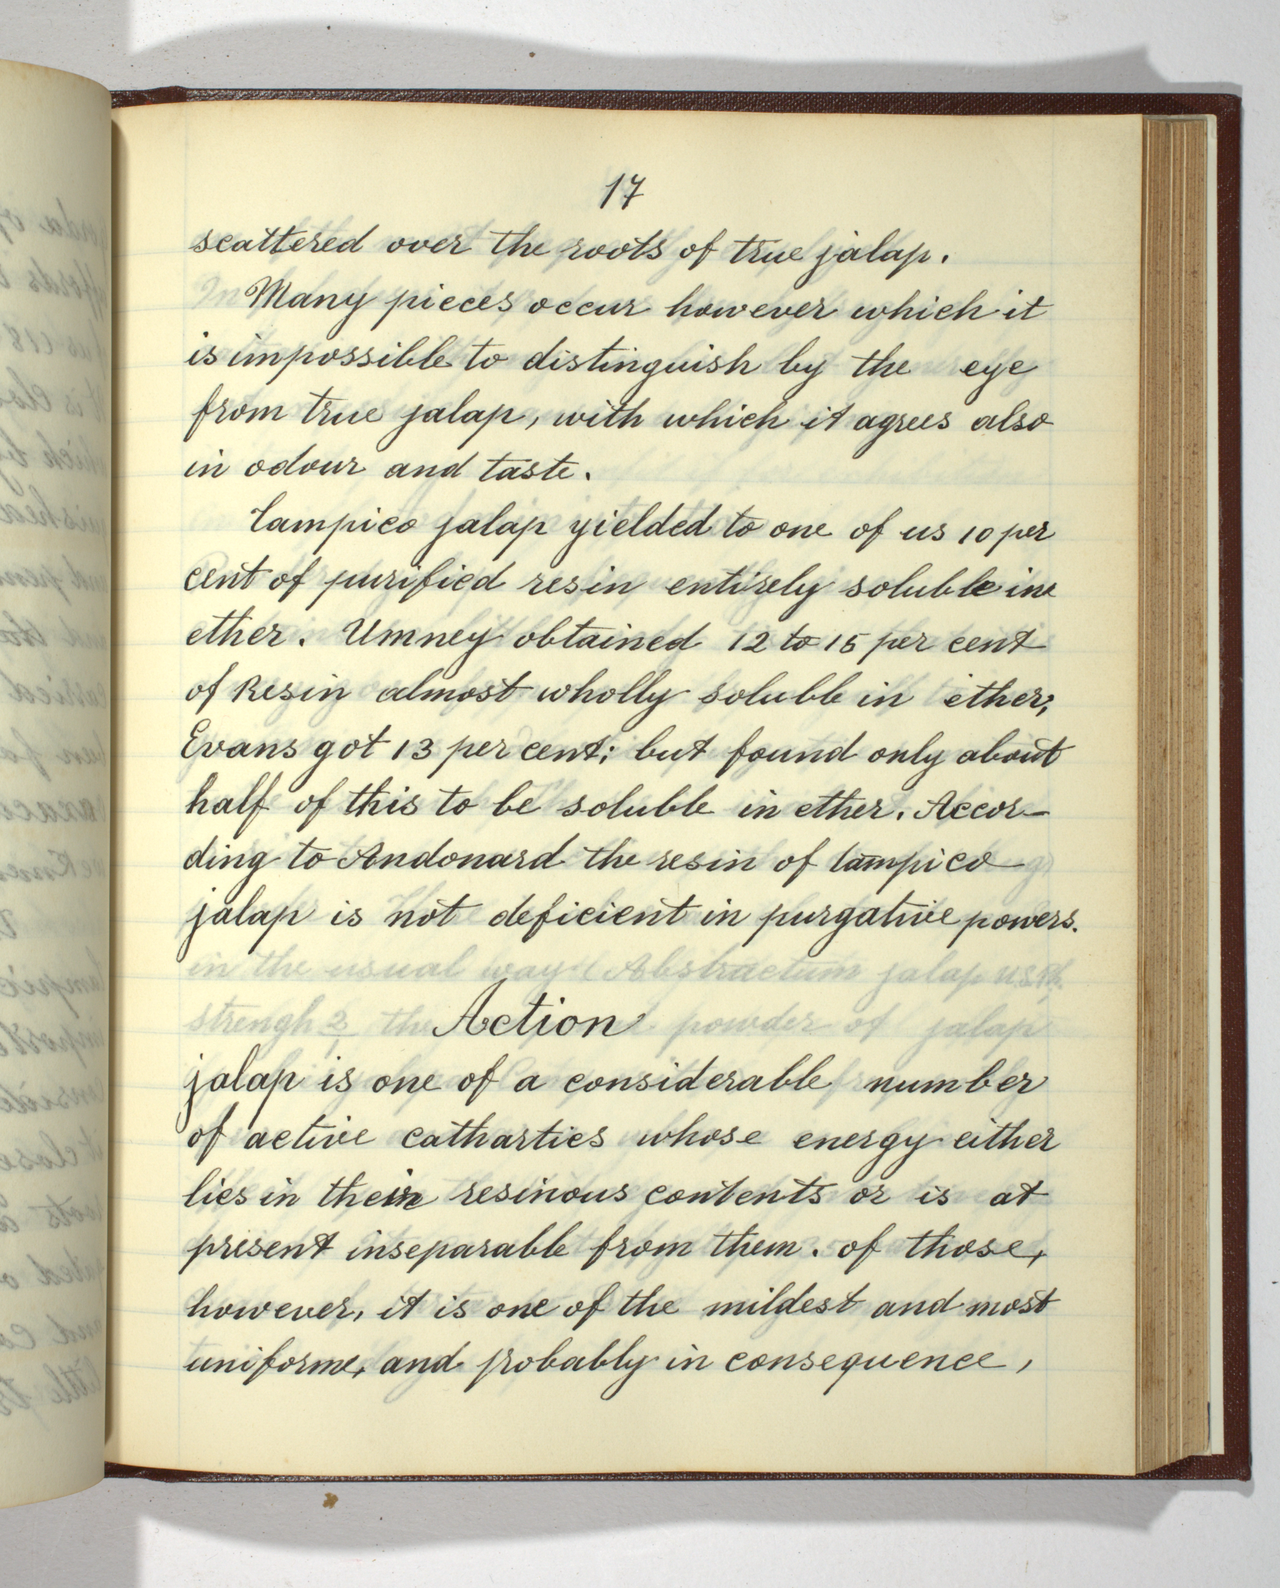 17
scattered over the roots of true jalap.
Many pieces occur however which it
is impossible to distinguish by the eye
from true jalap, with which it agrees also
in odour and taste.
Tampico jalap yielded to one of us 10 per
cent of purified resin entirely soluble in
ether. Umney obtained 12 to 15 per cent
of Resin almost wholly soluble in ether;
Evans got 13 per cent; but found only about
half of this to be soluble in ether. Accor-
ding to Andouard the resin of tampico
jalap is not deficient in purgative powers.
in the usual way (Abstractum jalap U.S.Ph.
strengh 2 the powder of jalap
Action
jalap is one of a considerable number
of active cathartics whose energy either
lies in their resinous contents or is at
present inseparable from them. of those,
however, it is one of the mildest and most
uniforme, and probably in consequence,